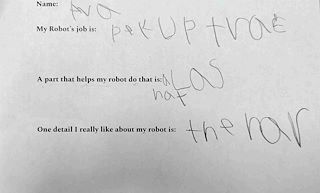 Name: Ava
My Robot's job is: pek UP trac
A part that helps my robot do that is:
One detail I really like about my robot is: the